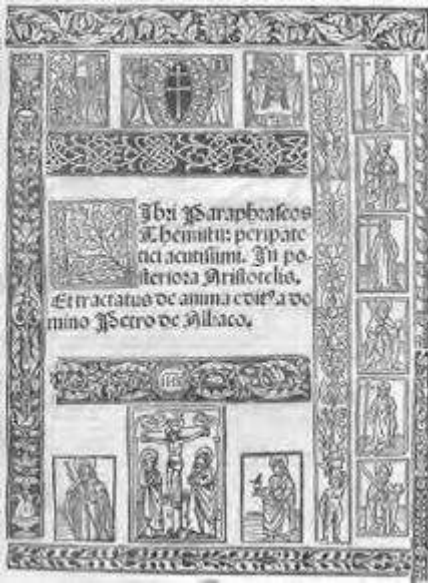 Libri Paraphraseos
Themistii: peripate
tici acutissimi. In po-
steriora Aristotelis.
Et tractatus de anima edit⁹ a do
mino Petro de Alliaco.
IHS